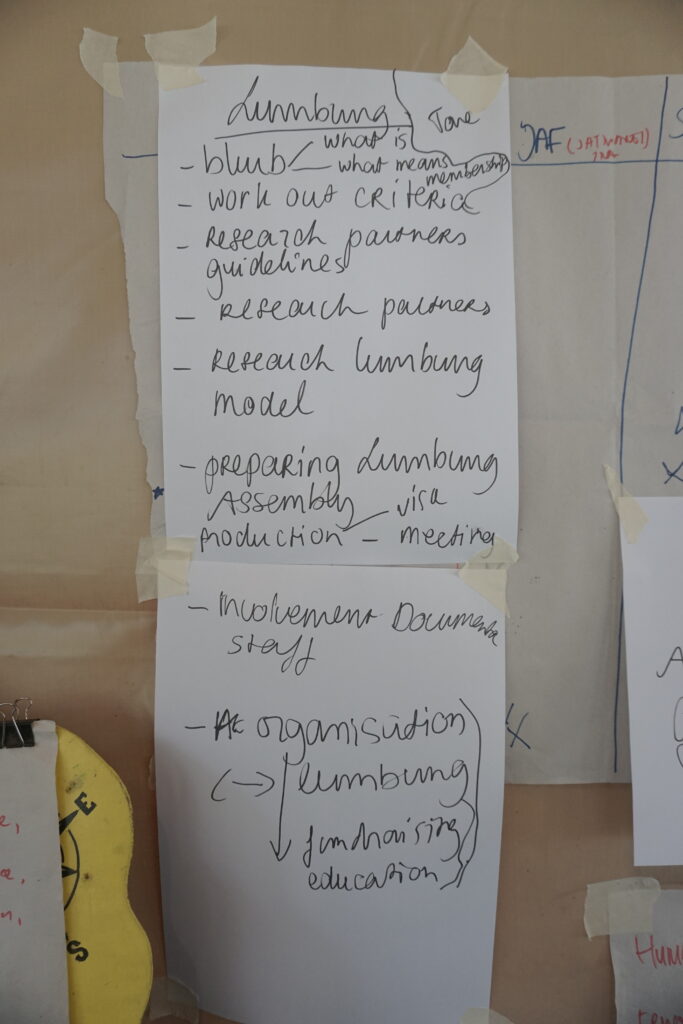 Lumbung
what is
Tone
- blurb
- what means
membership
- work out criteria
- Research partners
guidelines
- Research partners
- Research lumbung
model
- preparing Lumbung
Assembly
visa
production - meeting
- Involvement Documenta
staff
- organisation
(→) lumbung
fundraising
education
JAF
E
S
Hum